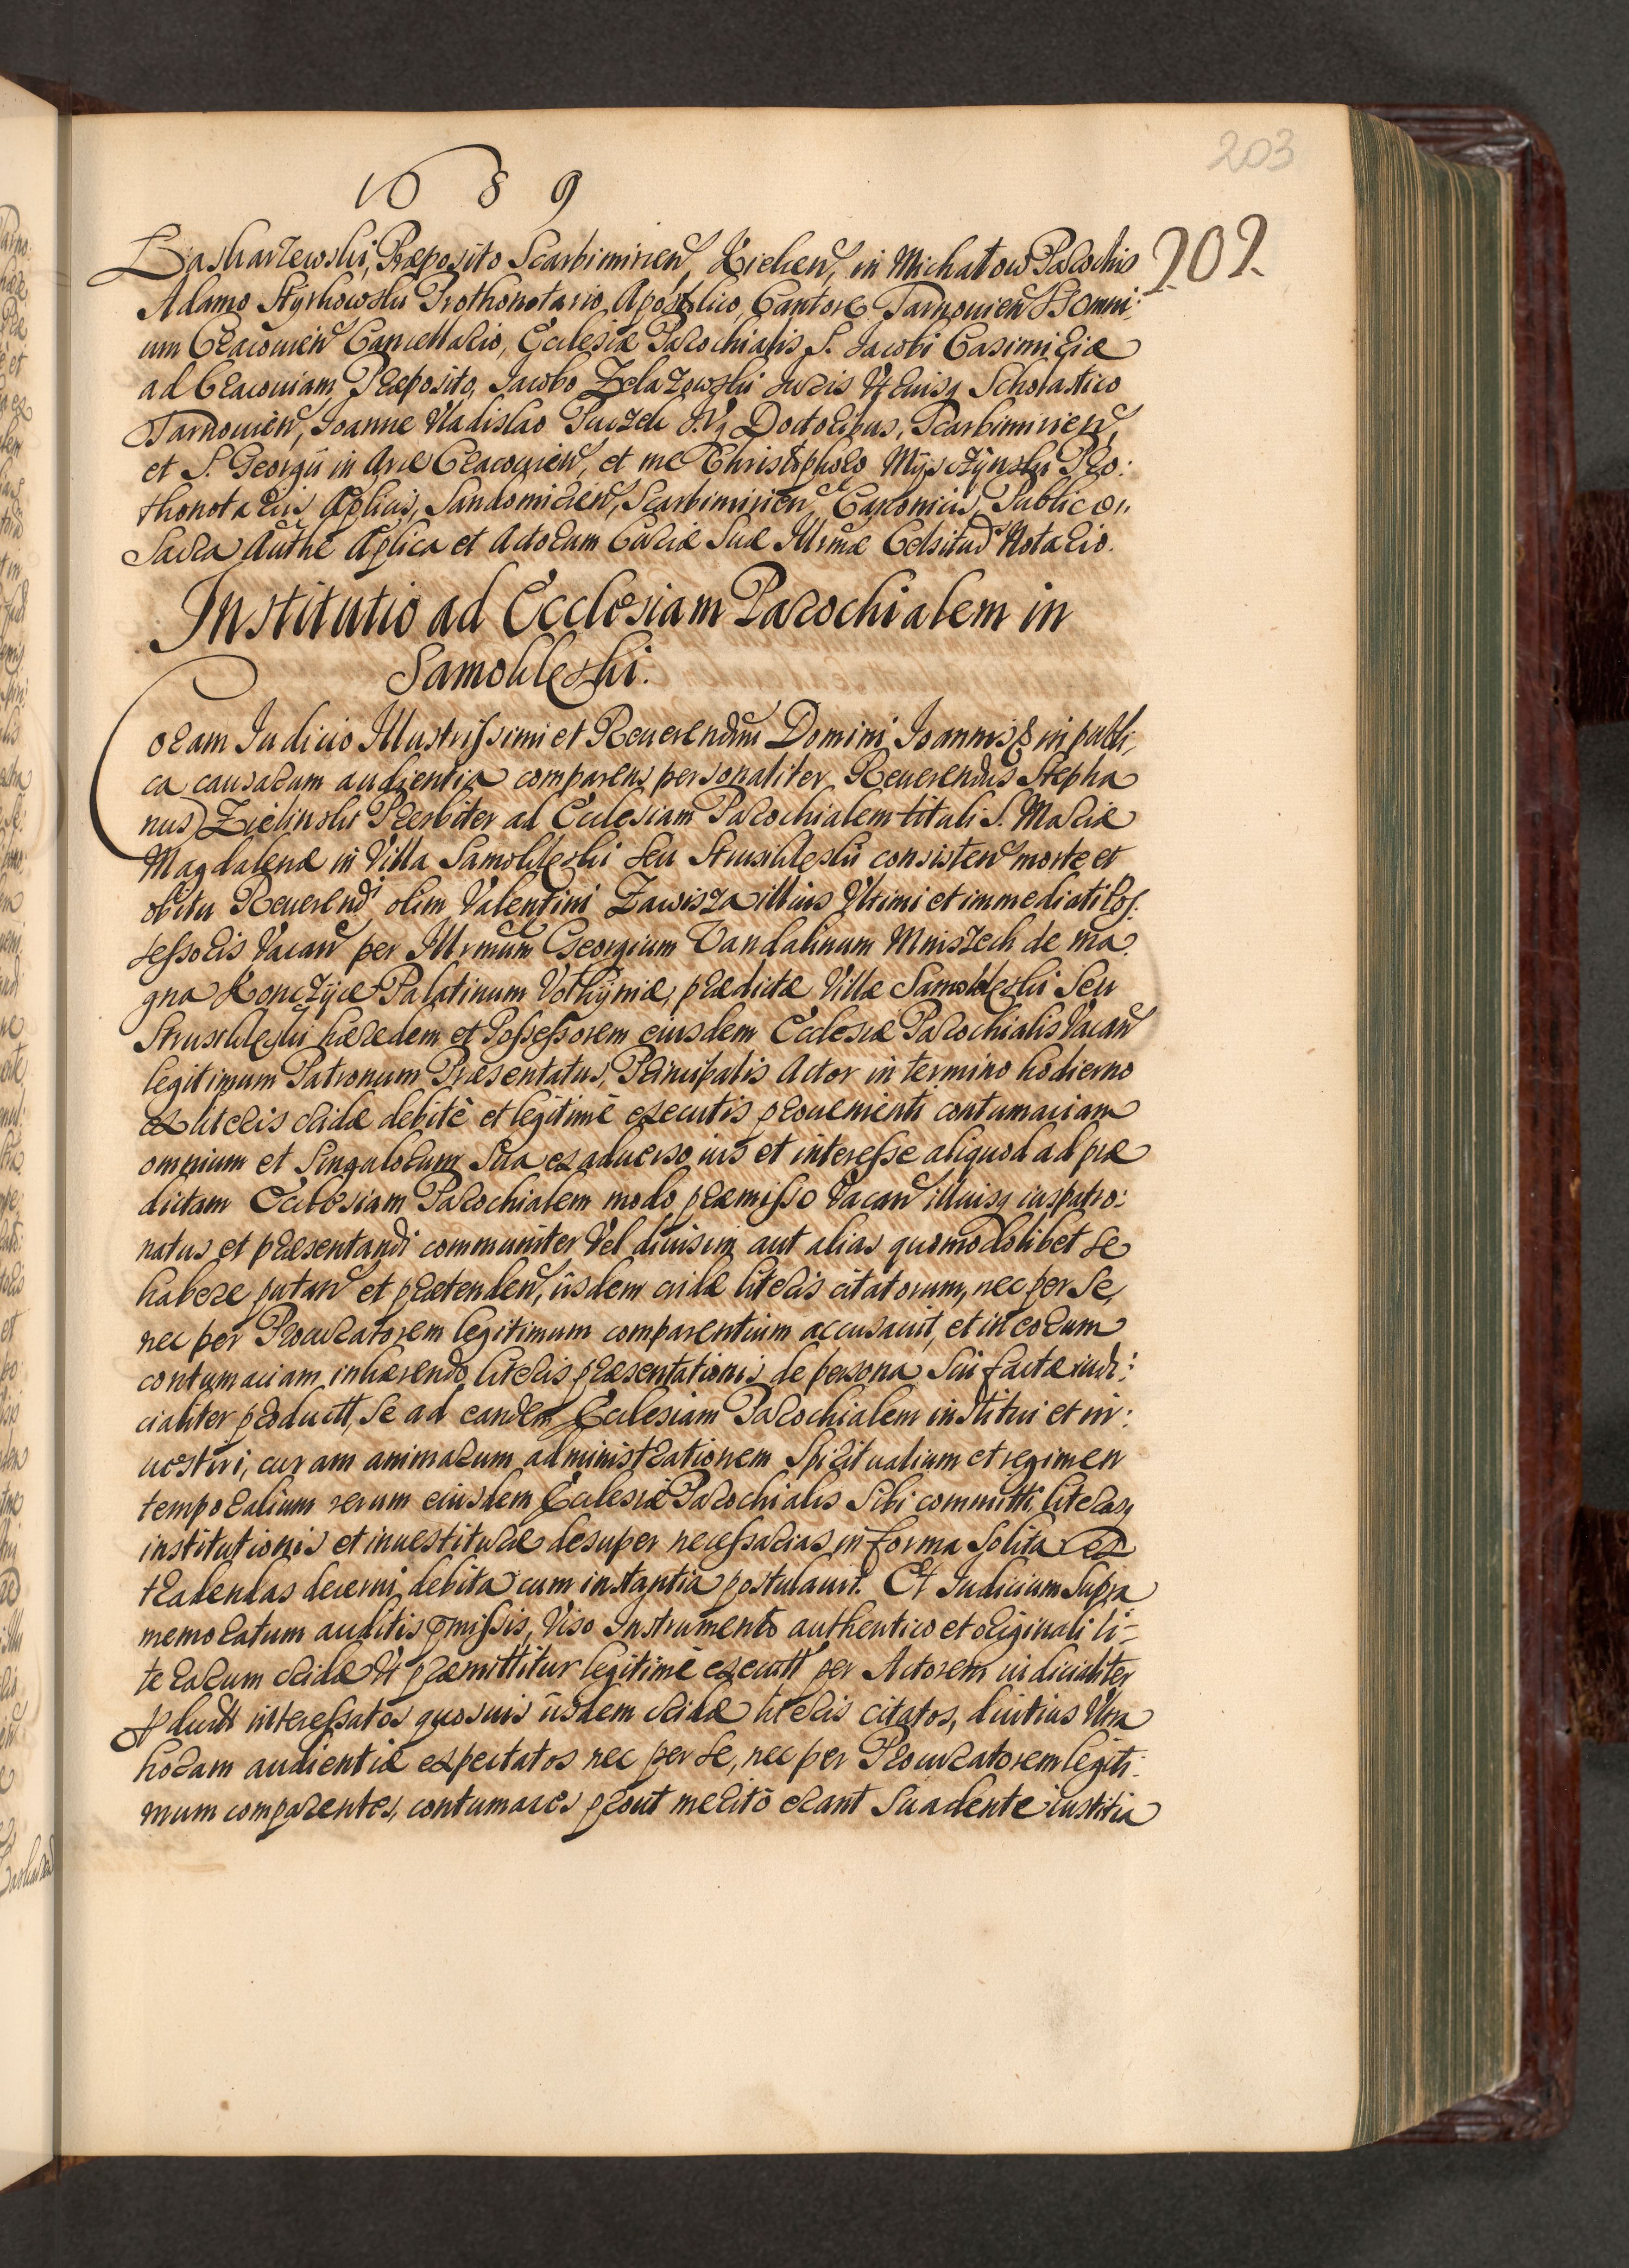 203
1689
202
Laskarzewski, Præposito Scarbimirien, Kielcen, in Michałow Parochis
Adamo Styrkowski Prothonotario Apostolico, Cantore Tarnouien Homni:
um Cracouien Cancellario, Ecclesiæ Parochialis S. Jacobi Casimiriæ
ad Cracouiam Præposito, Jacobo Zelazowski Juris Vtriusq Scholastico
Tarnouien, Joanne Vladislao Puczek J. Vq Doctoribus, Scarbimirien,
et S. Georgii in Arce Cracouien, et me Christophoro Mysczynski Pro:
thonotariis Aplicis, Sandomirien, Scarbimirien Canonicis, Publico
Sacra Authe Aplica et Actorum Curiæ Suæ Illrmæ Celsitud Notario.
Institutio ad Ecclesiam Parochialem in
Samokleski.
Coram Judicio Illustrissimi et Reuerendmi Domini Joannis & in publi,
ca causarum audientia comparens personaliter Reuerendus Stepha
nus Zielinski Presbiter ad Ecclesiam Parochialem tituli S. Mariæ
Magdalenæ in Villa Samokleski seu Strusikleski consisten morte et
obitu Reuerendi olim Valentini Zawisza illius Vltimi et immediati Pos:
sessoris Vacan per Illrmum Georgium Vandalinum Mniszech de ma
gna Konczyce Palatinum Volhyniæ, prædictæ Villæ Samokleski Seu
Strusikleski hæredem et Possessorem eiusdem Ecclesiæ Parochialis Vacan
legitimum Patronum Præsentatus, Principalis Actor in termino hodierno
ex literis cridæ debitè et legitimè executis prouenienti contumaciam
omnium et Singulorum Sua ex aduerso ius et interesse aliquod ad præ
dictam Ecclesiam Parochialem modo præmisso Vacan illiusq iuspatro:
natus et præsentandi communiter Vel diuisim aut alias quomodolibet se
habere putan et prætenden, iisdem cridæ literis citatorum, nec per Se,
nec per Procuratorem legitimum comparentium accusauit, et in eorum
contumaciam inhærendo literis præsentationis de persona Sui factæ iudi:
cialiter productt, Se ad eandem Ecclesiam Parochialem institui et in:
uestiri, curam animarum administrationem Spiritualium et regimen
temporalium rerum eiusdem Ecclesiæ Parochialis Sibi committi, literasq
institutionis et inuestituræ desuper necessarias in forma Solita ex
tradendas decerni, debita cum instantia postulauit. Et Judicium Supra
memoratum auditis pmissis, Viso Instrumento authentico et originali li-
terarum cridæ Vt præmittitur legitimè executt per Actorem iudicialiter
pduct interessatos quosuis iisdem cridæ literis citatos, diutius Vltra
horam audientiæ expectatos nec per se, nec per Procuratorem legiti:
mum comparentes, contumaces prout meritò erant Suadente iustitia